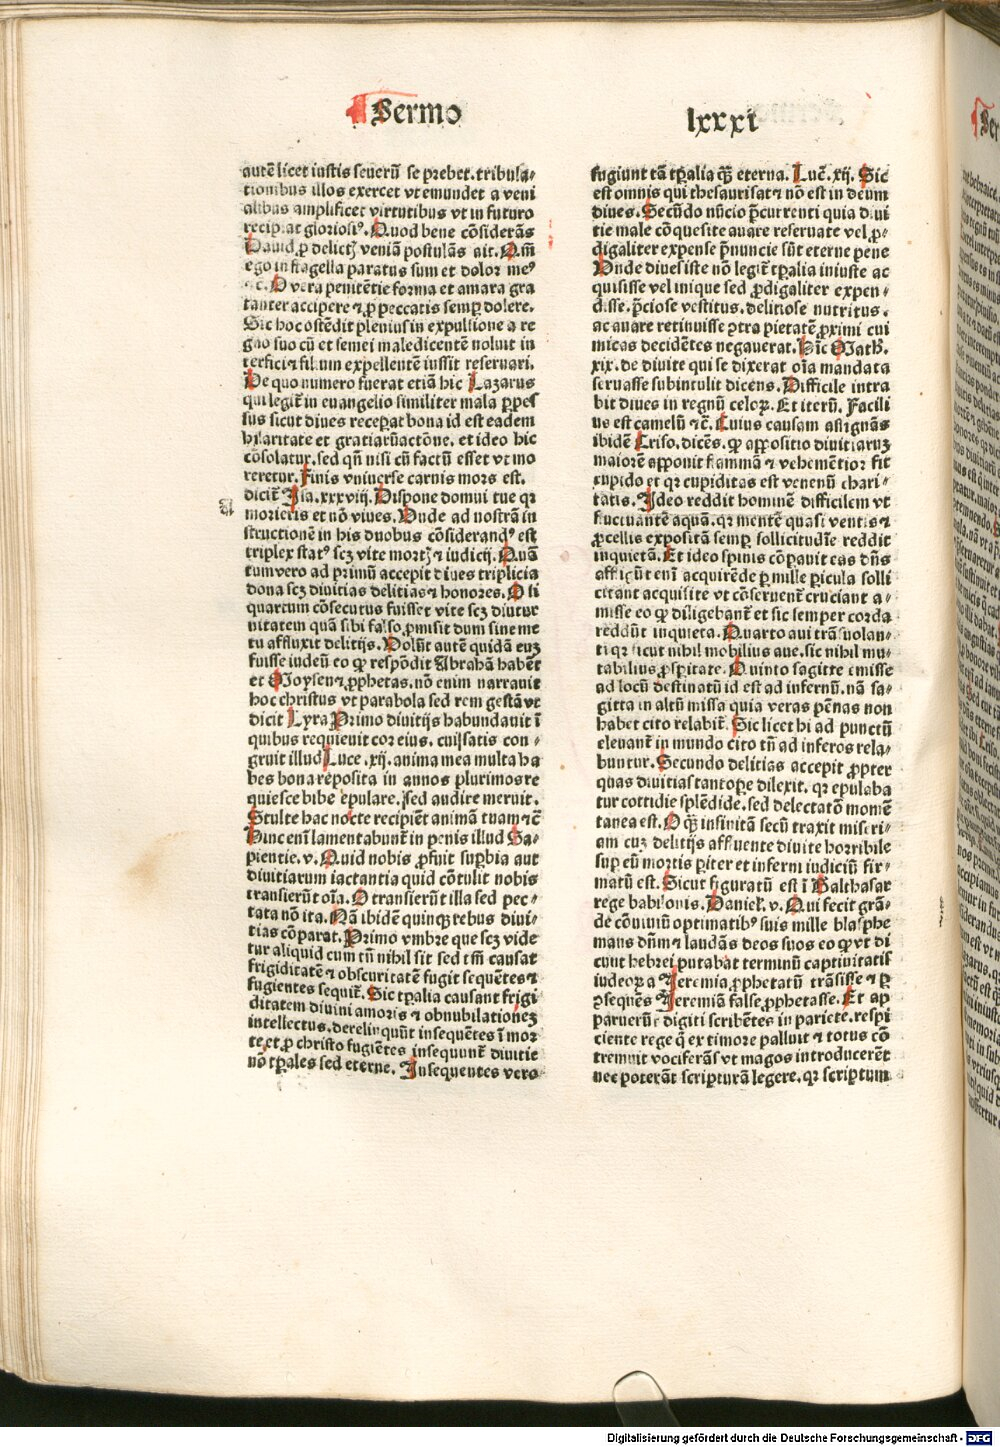 Sermo
lxxxi
autē licet iustis seuerū se prebet. tribula⸗
tionibus illos exercet vt emundet a veni
alibus amplificet virtutibus vt in futuro
recipiat gloriosiꝰ. Quod bene cōsiderās
Dauid ꝓ delictꝭ veniā postulās ait. Qm̄
ego in flagella paratus sum et dolor meꝰ
⁊c. O vera penitētie forma et amara gra
tanter accipere ⁊ ꝓ peccatis semꝑ dolere.
Sic hoc ostēdit plenius in expulsione a re
gno suo cū et semei maledicentē noluit in
terfici ⁊ filium expellentē iussit reseruari.
De quo numero fuerat etiā hic Lazarus
qui legit̄ in euangelio similiter mala ꝑpes
sus sicut diues receperat bona id est eadem
hilaritate et gratiarū actōne. et ideo hic
cōsolatur. sed qn̄ nisi cū factū esset vt mo
reretur. Finis vniuerse carnis mors est.
dicit̄ Isa. xxxviij. Dispone domui tue qꝛ
A
morieris et nō viues. Unde ad nostrā in
structionē in his duobus cōsiderandꝰ est
triplex statꝰ scꝫ vite mortꝭ ⁊ iudicij. Quā
tum vero ad primū accepit diues triplicia
dona scꝫ diuitias delitias ⁊ honores. O si
quartum cōsecutus fuisset vite scꝫ diutur
nitatem quā sibi falso ꝓmisit dum sine me
tu affluxit delitijs. Uolūt autē quidā euꝫ
fuisse iudeū eo qꝙ respōdit Abrahā habēt
et Moysen ⁊ ꝓphetas. nō enim narrauit
hoc christus vt parabola sed rem gestā vt
dicit Lyra Primo diuitijs habundauit ī
quibus requieuit cor eius. cui satis con⸗
gruit illud Luce .xij. anima mea multa ha
bes bona reposita in annos plurimos re
quiesce bibe epulare. sed audire meruit.
Stulte hac nocte recipiēt animā tuam ⁊c̄
Hinc enī lamentabunt̄ in penis illud Sa⸗
pientie. v. Quid nobis ꝓfuit suꝑbia aut
diuitiarum iactantia quid cōtulit nobis
transierūt oīa. O transierūt illa sed pec⸗
tata nō ita. Nā ibidē quinqꝫ rebus diui⸗
tias cōparat. Primo vmbre que scꝫ vide
tur aliquid cum tn̄ nihil sit sed tn̄ causat
frigiditatē ⁊ obscuritatē fugit sequētes ⁊
fugientes sequit̄. Sic tꝑalia causant frigi
ditatem diuini amoris ⁊ obnubilationeꝫ
intellectus. derelinquūt insequētes ī mor
te et ꝓ christo fugiētes insequunt̄ diuitie
nō tꝑales sed eterne. Insequentes vero
fugiunt tā tꝑalia qꝫ̄ eterna. Luē. xij. Sic
est omnis qui thesaurisat ⁊ nō est in deum
diues. Secūdo nūcio p̄currenti quia diui
tie male cōquesite auare reseruate vel ꝓ⸗
digaliter expense p̄nuncie sūt eterne pene
Unde diues iste nō legit̄ tꝑalia iniuste ac
quisisse vel inique sed ꝓdigaliter expen⸗
disse. p̄ciose vestitus. delitiose nutritus.
ac auare retinuisse ꝯtra pietatē ꝓximi cui
micas decidētes negauerat. Hīc Math.
xix. de diuite qui se dixerat oīa mandata
seruasse subintulit dicens. Difficile intra
bit diues in regnū celoꝝ. Et iterū. Facili
us est camelū ⁊c̄. Cuius causam assignās
ibidē Criso. dicēs. qꝙ appositio diuitiaruꝫ
maiorē apponit flammā ⁊ vehemētior fit
cupido et qꝛ cupiditas est venenū chari⸗
tatis. Ideo reddit hominē difficilem vt
fluctuantē aquā. qꝛ mentē quasi ventis ⁊
ꝓcellis expositā semꝑ sollicitudīe reddit
inquietā. Et ideo spinis cōpauit eas dn̄s
affligūt enī acquirēde ꝑ mille ꝑicula solli
citant acquisite vt cōseruent̄ cruciant a⸗
misse eo qꝙ diligebant̄ et sic semper corda
reddūt inquieta. Quarto aui trāsuolan⸗
ti qꝛ sicut nihil mobilius aue. sic nihil mu⸗
tabilius ꝓsperitate. Quinto sagitte emisse
ad locū destinatū id est ad infernū. nā sa⸗
gitta in altū missa quia veras pēnas non
habet cito relabit̄. Sic licet hi ad punctū
eleuant̄ in mundo cito tn̄ ad inferos rela⸗
buntur. Secundo delitias accepit ꝓpter
quas diuitias tantope dilexit. qꝛ epulaba
tur cottidie splēdide. sed delectatō momē
tanea est. O qꝫ̄ infinitā secū traxit miseri⸗
am cuꝫ delitijs affluente diuite horribile
suꝑ eū mortis ꝑiter et inferni iudiciū fir⸗
matū est. Sicut figuratū est ī Balthasar
rege babilonis. Daniel. v. Qui fecit grā⸗
de cōuiuiū optimatibꝰ suis mille blasphe
mans dn̄m ⁊ laudās deos suos eo qꝙ vt di
cunt hebrei putabat terminū captiuitatis
iudeoꝝ a Jeremia ꝓphetatū trāsisse ⁊ ꝑ
ꝯsequēs Jeremiā false ꝓphetasse. Et ap
paruerūt digiti scribētes in pariete. respi
ciente rege qꝙ ex timore palluit ⁊ totus cō
tremuit vociferās vt magos introducerēt
nec poterāt scripturā legere. qꝛ scriptum
Digitalisierung gefördert durch die Deutsche Forschungsgemeinschaft - DFG